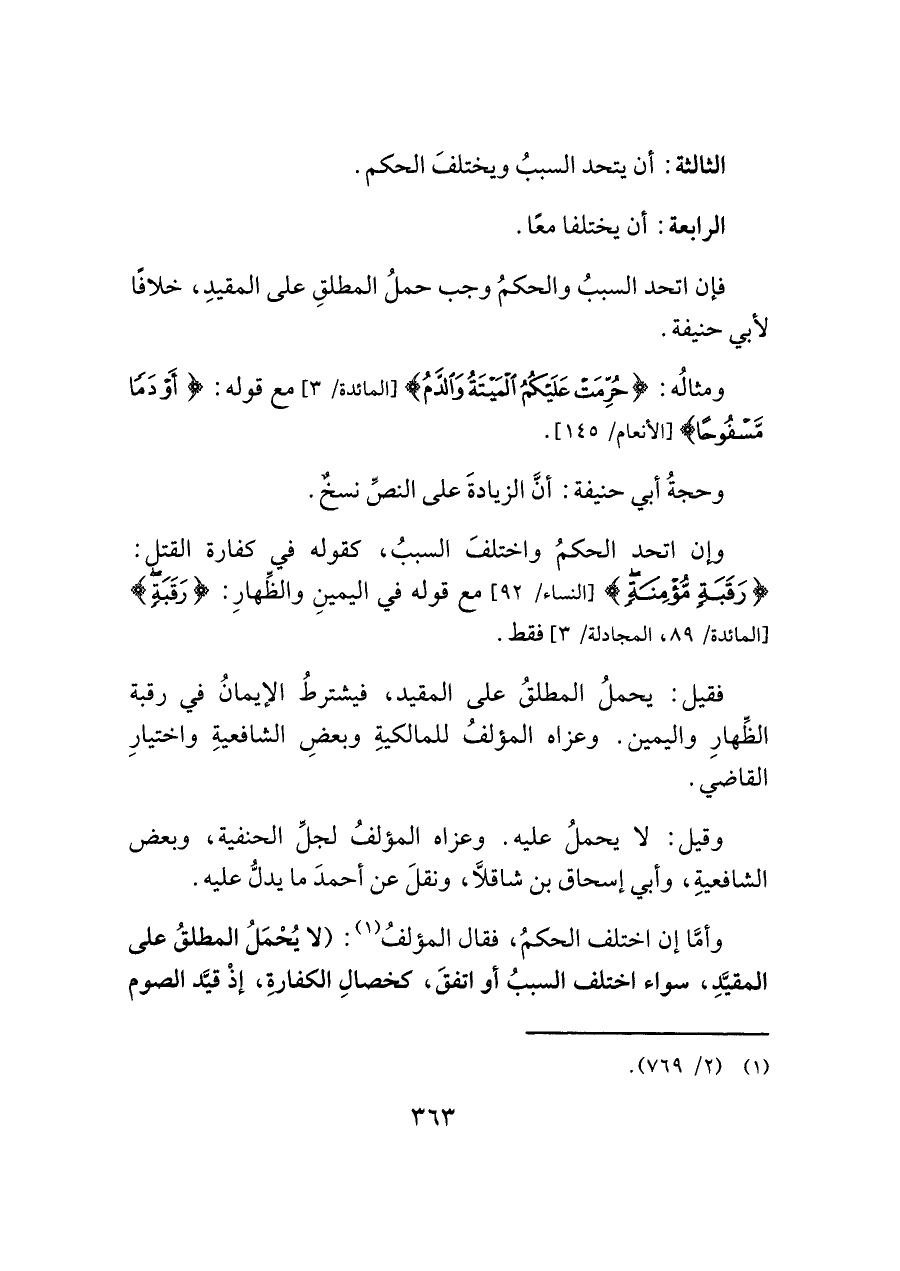 الثالثة: أن يتحد السببُ ويختلفَ الحكم.
الرابعة: أن يختلفا معًا.
فإن اتحد السببُ والحكمُ وجب حملُ المطلقِ على المقيدِ، خلافًا
لأبي حنيفة.
ومثالُه: ﴿حُرِّمَتْ عَلَيْكُمُ ٱلْمَيْتَةُ وَٱلدَّمُ﴾ [المائدة/ ٣] مع قوله: ﴿أَوْ دَمًا
مَّسْفُوحًا﴾ [الأنعام/ ١٤٥].
وحجةُ أبي حنيفة: أنَّ الزيادةَ على النصِّ نسخٌ.
وإن اتحد الحكمُ واختلفَ السببُ، كقوله في كفارة القتلِ:
﴿رَقَبَةٍ مُّؤْمِنَةٍۖ﴾ [النساء/ ٩٢] مع قوله في اليمينِ والظِّهارِ: ﴿رَقَبَةٍۖ﴾
[المائدة/ ٨٩، المجادلة/ ٣] فقط.
فقيل: يحملُ المطلقُ على المقيد، فيشترطُ الإيمانُ في رقبة
الظِّهارِ واليمين. وعزاه المؤلفُ للمالكيةِ وبعضِ الشافعيةِ واختيارِ
القاضي.
وقيل: لا يحملُ عليه. وعزاه المؤلفُ لجلِّ الحنفية، وبعض
الشافعيةِ، وأبي إسحاق بن شاقلاَّ، ونقلَ عن أحمدَ ما يدلُّ عليه.
وأمَّا إن اختلف الحكمُ، فقال المؤلفُ(١): (لا يُحْمَلُ المطلقُ على
المقيَّدِ، سواء اختلف السببُ أو اتفقَ، كخصالِ الكفارةِ، إذْ قيَّد الصوم
(١) (٢/ ٧٦٩).
٣٦٣